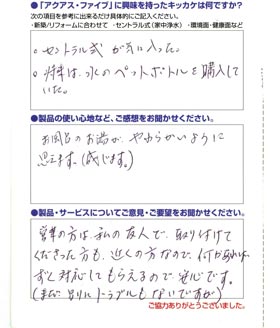 ●「アクアス・ファイブ」に興味を持ったキッカケは何ですか?
次の項目を参考に出来るだけ具体的にご記入ください。
・新築/リフォームに合わせて ・セントラル式(家中浄水) ・環境面・健康面など
・セントラル式が気に入った。
・水のペットボトルを購入して
いた。
●製品の使い心地など、ご感想をお聞かせください。
お風呂のお湯が、やわらかいように
思えます。(感じます。)
●製品・サービスについてご意見・ご要望をお聞かせください。
営業の方は、私の友人で、取り付けて
くださった方も、近くの方なので、何かあれば、
すぐ対応してもらえるので安心です。
(まだ、別にトラブルもないですが)
ご協力ありがとうございました。